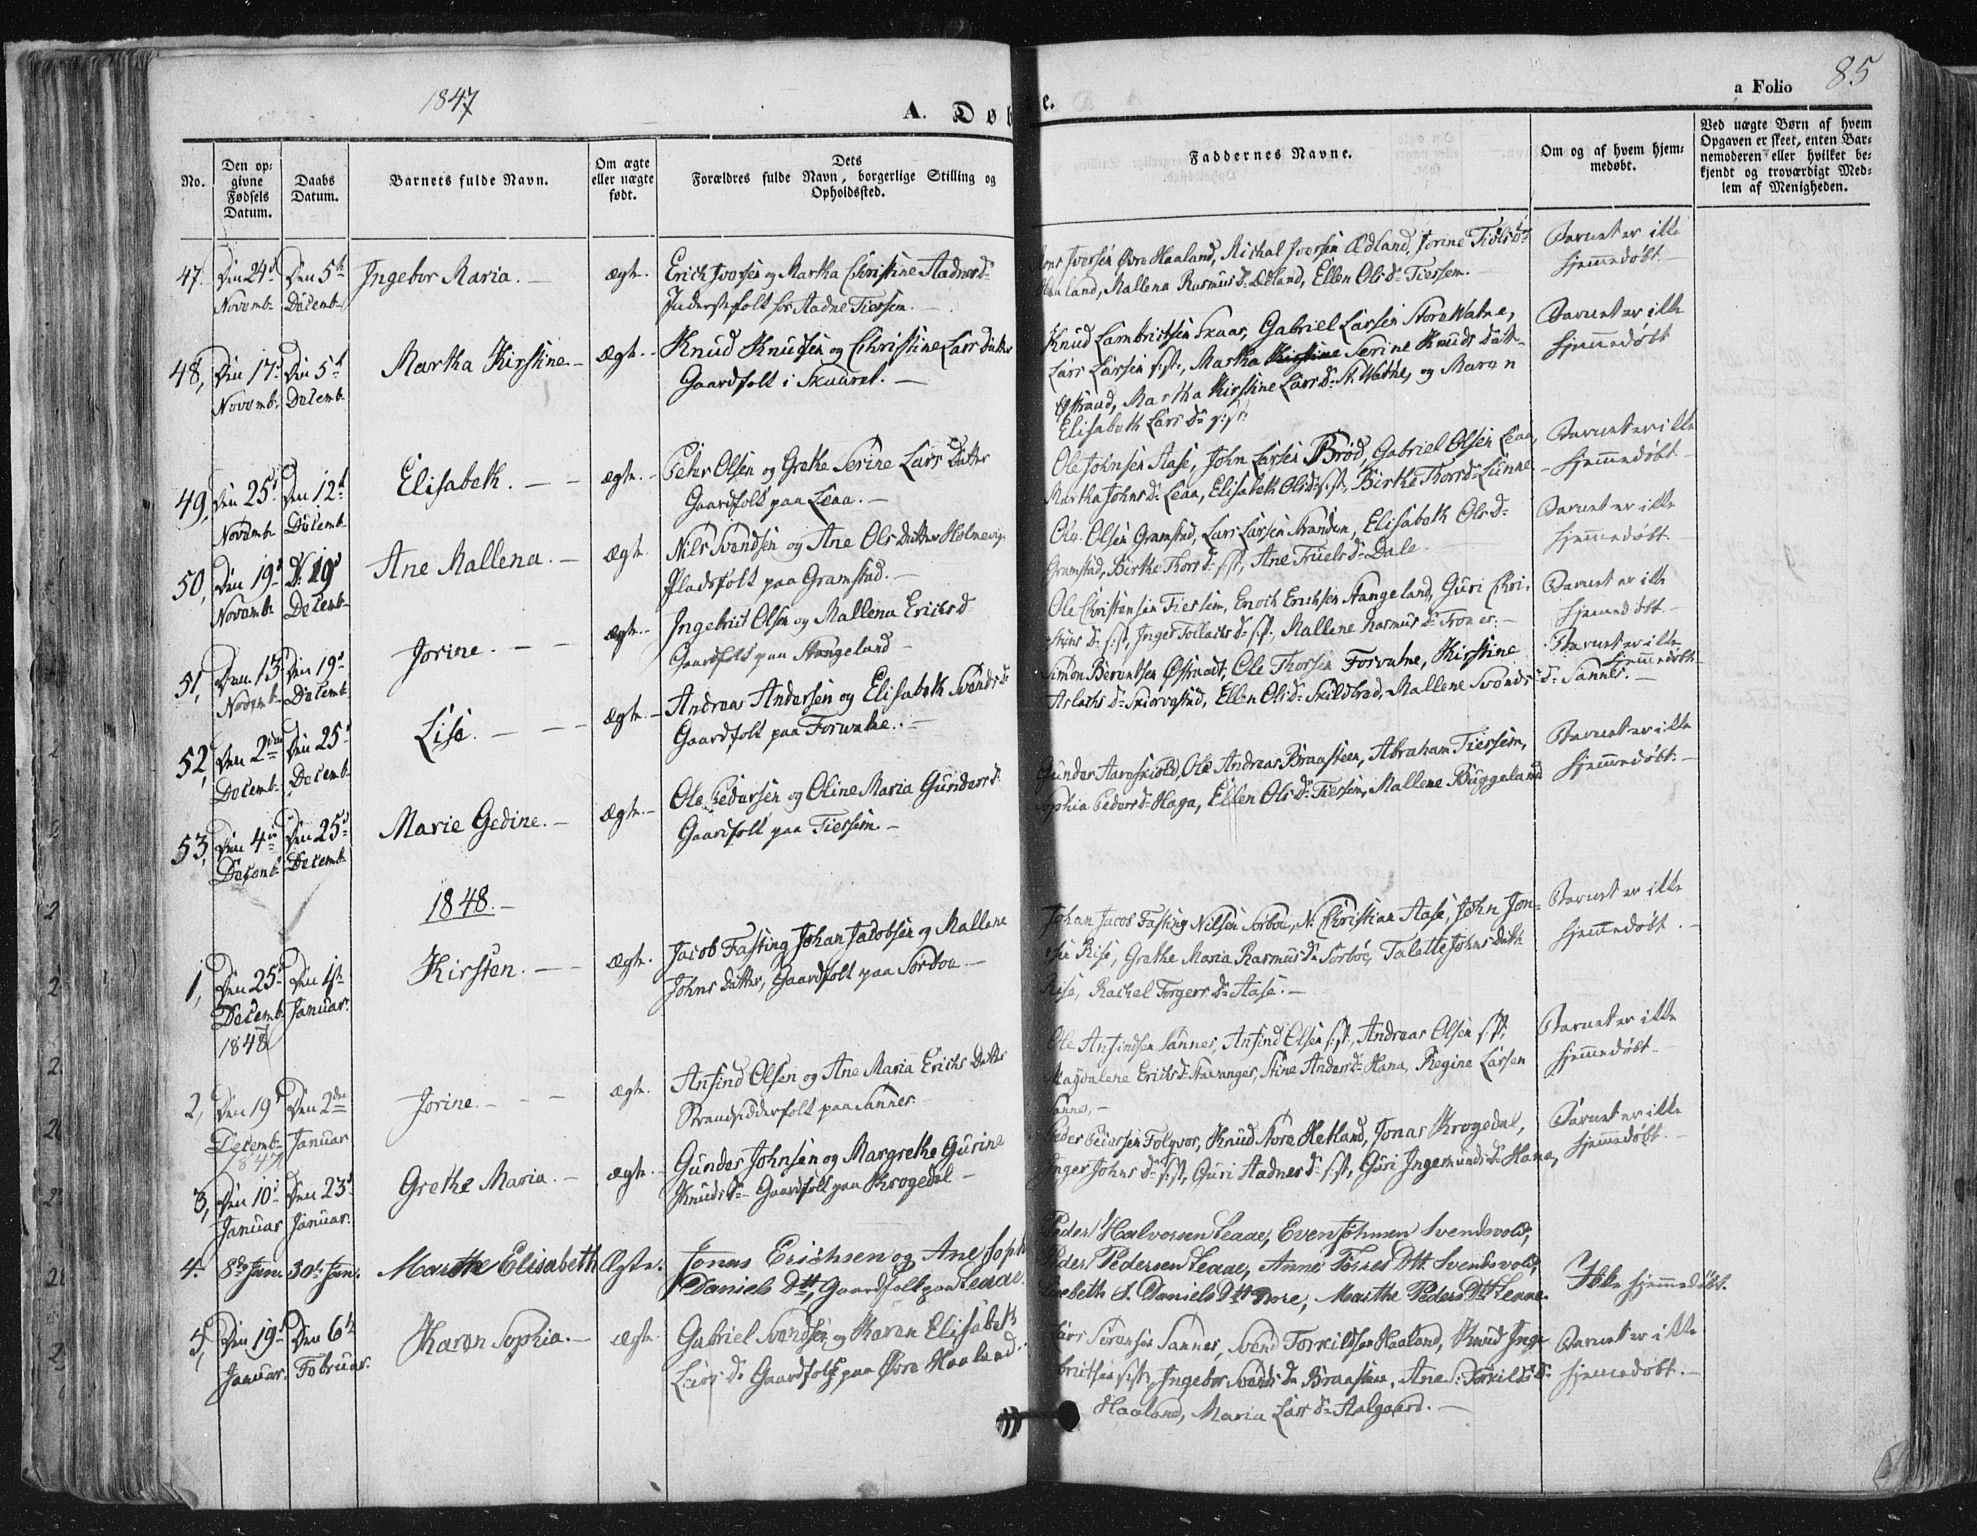 1847
A. Døb
e.
a Folio 85
No.
Den op-
givne
Fødsels
Datum.
Daabs
Datum.
Barnets fulde Navn.
Om ægte
eller uægte
født.
Dets
Forældres fulde Navn, borgerlige Stilling og
Opholdssted.
Faddernes Navne.
Om og af hvem hjem-
medøbt.
Ved uægte Børn af hvem
Opgaven er skeet, enten Bar-
nemoderen eller hvilket be-
kjendt og troværdigt Med-
lem af Menigheden.
47. Den 24d
Novemb.
Den 5te
Decemb.
Ingebor Maria. —
ægte.
Erich Iversen og Martha Christine Aadnesd.
Inderstefolk hos Aadne Tiessem. —
Iversen Øvre Haaland, Michal Iversen Ædland, Jorine
land, Mallena Rasmusd. Ædland, Ellen Olsd. Tiessem. —
Barnet er ikke
hjemmedøbt
48, Den 17d
Novemb.
Den 5te
Decemb.
Martha Kirstine —
ægte. —
Knud Knudsen og Christine Lars Datter
Gaardfolk i Skaaret. —
Knud Lambrichtsen Skaar, Gabriel Larsen Store Watne,
Lars Larsen s:st:, Martha Serine Knuds Datt.
Martha Kirstine Larsd. St. Wathne, og Maren
Elisabeth Larsd. s:st:
Barnet er ikke
hjemmedøbt
49, Den 25d
Novemb.
Den 12te
Decemb.
Elisabeth. — —
ægte. —
Peder Olsen og Grethe Serine Lars Datter
Gaardfolk paa Leaa. —
Ole Johnsen Aase, John Larsen Brød, Gabriel Olsen Leaa,
Martha Johnsd. Leaa, Elisabeth Olsd. s:st, Birthe Thorsd. Lunne
Barnet er ikke
hjemmedøbt
50, Den 19d
Novemb.
D. 19d
Decemb.
Ane Mallena. —
ægte
Nils Svendsen og Ane Ols Datter Holmevig
Pladsfolk paa Gramstad. —
Ole Olsen Gramstad, Lars Larsen Elisabeth Olsd.
Gramstad, Birthe Thorsd. s:st, Ane Truelsd. Dale
Barnet er ikke
hjemmedøbt
51, Den 13
Novemb.
Den 19d
Decemb.
Jorine. — —
ægte. —
Ingebrict Olsen og Mallena Erichsd.
Gaardfolk paa Stangeland —
Ole Christensen Tiessem, Enoch Erichsen Stangeland, Guri Chri-
stens d. s:st, Inger Tollachsd. s:st, Mallene Rasmusd. Troner. —
Barnet er ikke
hjemmedøbt
52, Den 2den
Decemb.
Den 25d
Decemb.
Lise. — —
ægte. —
Andreas Andersen og Elisabeth Svendsd.
Gaardfolk paa Forwatne. —
Simon Berentsen Østraadt, Ole Thorsen Forvatne, Kirstine
Aslachsd. Ellen Olsd. Skildstad, Mallene Svendsd. Sannes. —
Barnet er ikke
hjemmedøbt
53, Den 4de
Decemb.
Den 25d
Decemb.
Marie Gedine. —
ægte. —
Ole Pedersen og Oline Maria Gundersd.
Gaardfolk paa Tiessem. —
Gunder Ole Andreas Braasteen, Abraham Tiessem,
Sophia Pedersd. Haga, Ellen Olsd. Tiessem, Mallene Buggeland
Barnet er ikke
hjemmedøbt. —
1848. —
1, Den 25d
Decemb.
1848
Den 1ste
Januar.
Kirsten. — —
ægte.
Jacob Fasting Johan Jacobsen og Mallene
Johns Datter, Gaardfolk paa Sørboe —
Johan Jacob Fasting Nilsen Sørboe, N. Christian Aase, John Jon-
sen Rise, Grethe Maria Rasmusd. Sørboe, Talette Johns Datt.
Rise, Rachel Torgersd. Aase. —
Barnet er ikke
hjemmedøbt.
2, Den 19d
Decemb.
1847
Den 2den
Januar
Jorine. — — —
ægte.
Anfind Olsen og Ane Maria Erichs Datter
Strandsidderfolk paa Sannes —
Ole Anfindsen Sannes, Anfind Olsen s:st, Andreas Olsen s:st,
Magdalene Erichsd. Stavanger, Stine Andersd. Hana, Regine Larsen
Sannes, —
Barnet er ikke
hjemmedøbt. —
3, Den 10d
Januar
Den 23d
Januar.
Grethe Maria. —
ægte. —
Gunder Johnsen og Margrethe Gurine
Knudsd. — Gaardfolk paa Krogedal —
Peder Pedersen Folgvor, Knud Store Hetland, Jonas Krogedal,
Inger Johnsd. s:st, Guri Aadnesd. s:st, Guri Ingemundsd. Hana,
Barnet er ikke
hjemmedøbt. —
4. 8de Jan.
30te Jan.
Marthe Elisabeth
Ægte.
Jonas Erichsen og Ane Soph
Daniels Dtt, Gaardfolk paa Leaae.
Peder Halvorsen Leaae, Even Johnsen Svendsvold,
Peder Pedersen Leaae, Anne Torres Dtt. Svendsvold,
Lisebeth S. Daniels Dtt. Dore, Marthe Peders Dtt. Leaae.
Ikke hjemmedøbt.
5, Den 19d
Januar.
Den 6te
Februar.
Karen Sophia. —
ægte.
Gabriel Svendsen og Karen Elisabeth
Larsd. Gaardfolk paa Øvre Haaland.
Lars Sørensen Sannes, Svend Torkildsen Haaland, Knud Inge-
brictsen s:st, Ingebor Svendsd. Braasten, Ane S. Torkildsd.
Haaland, Maria Larsd. Aalgaard. —
Barnet er ikke
hjemmedøbt. —